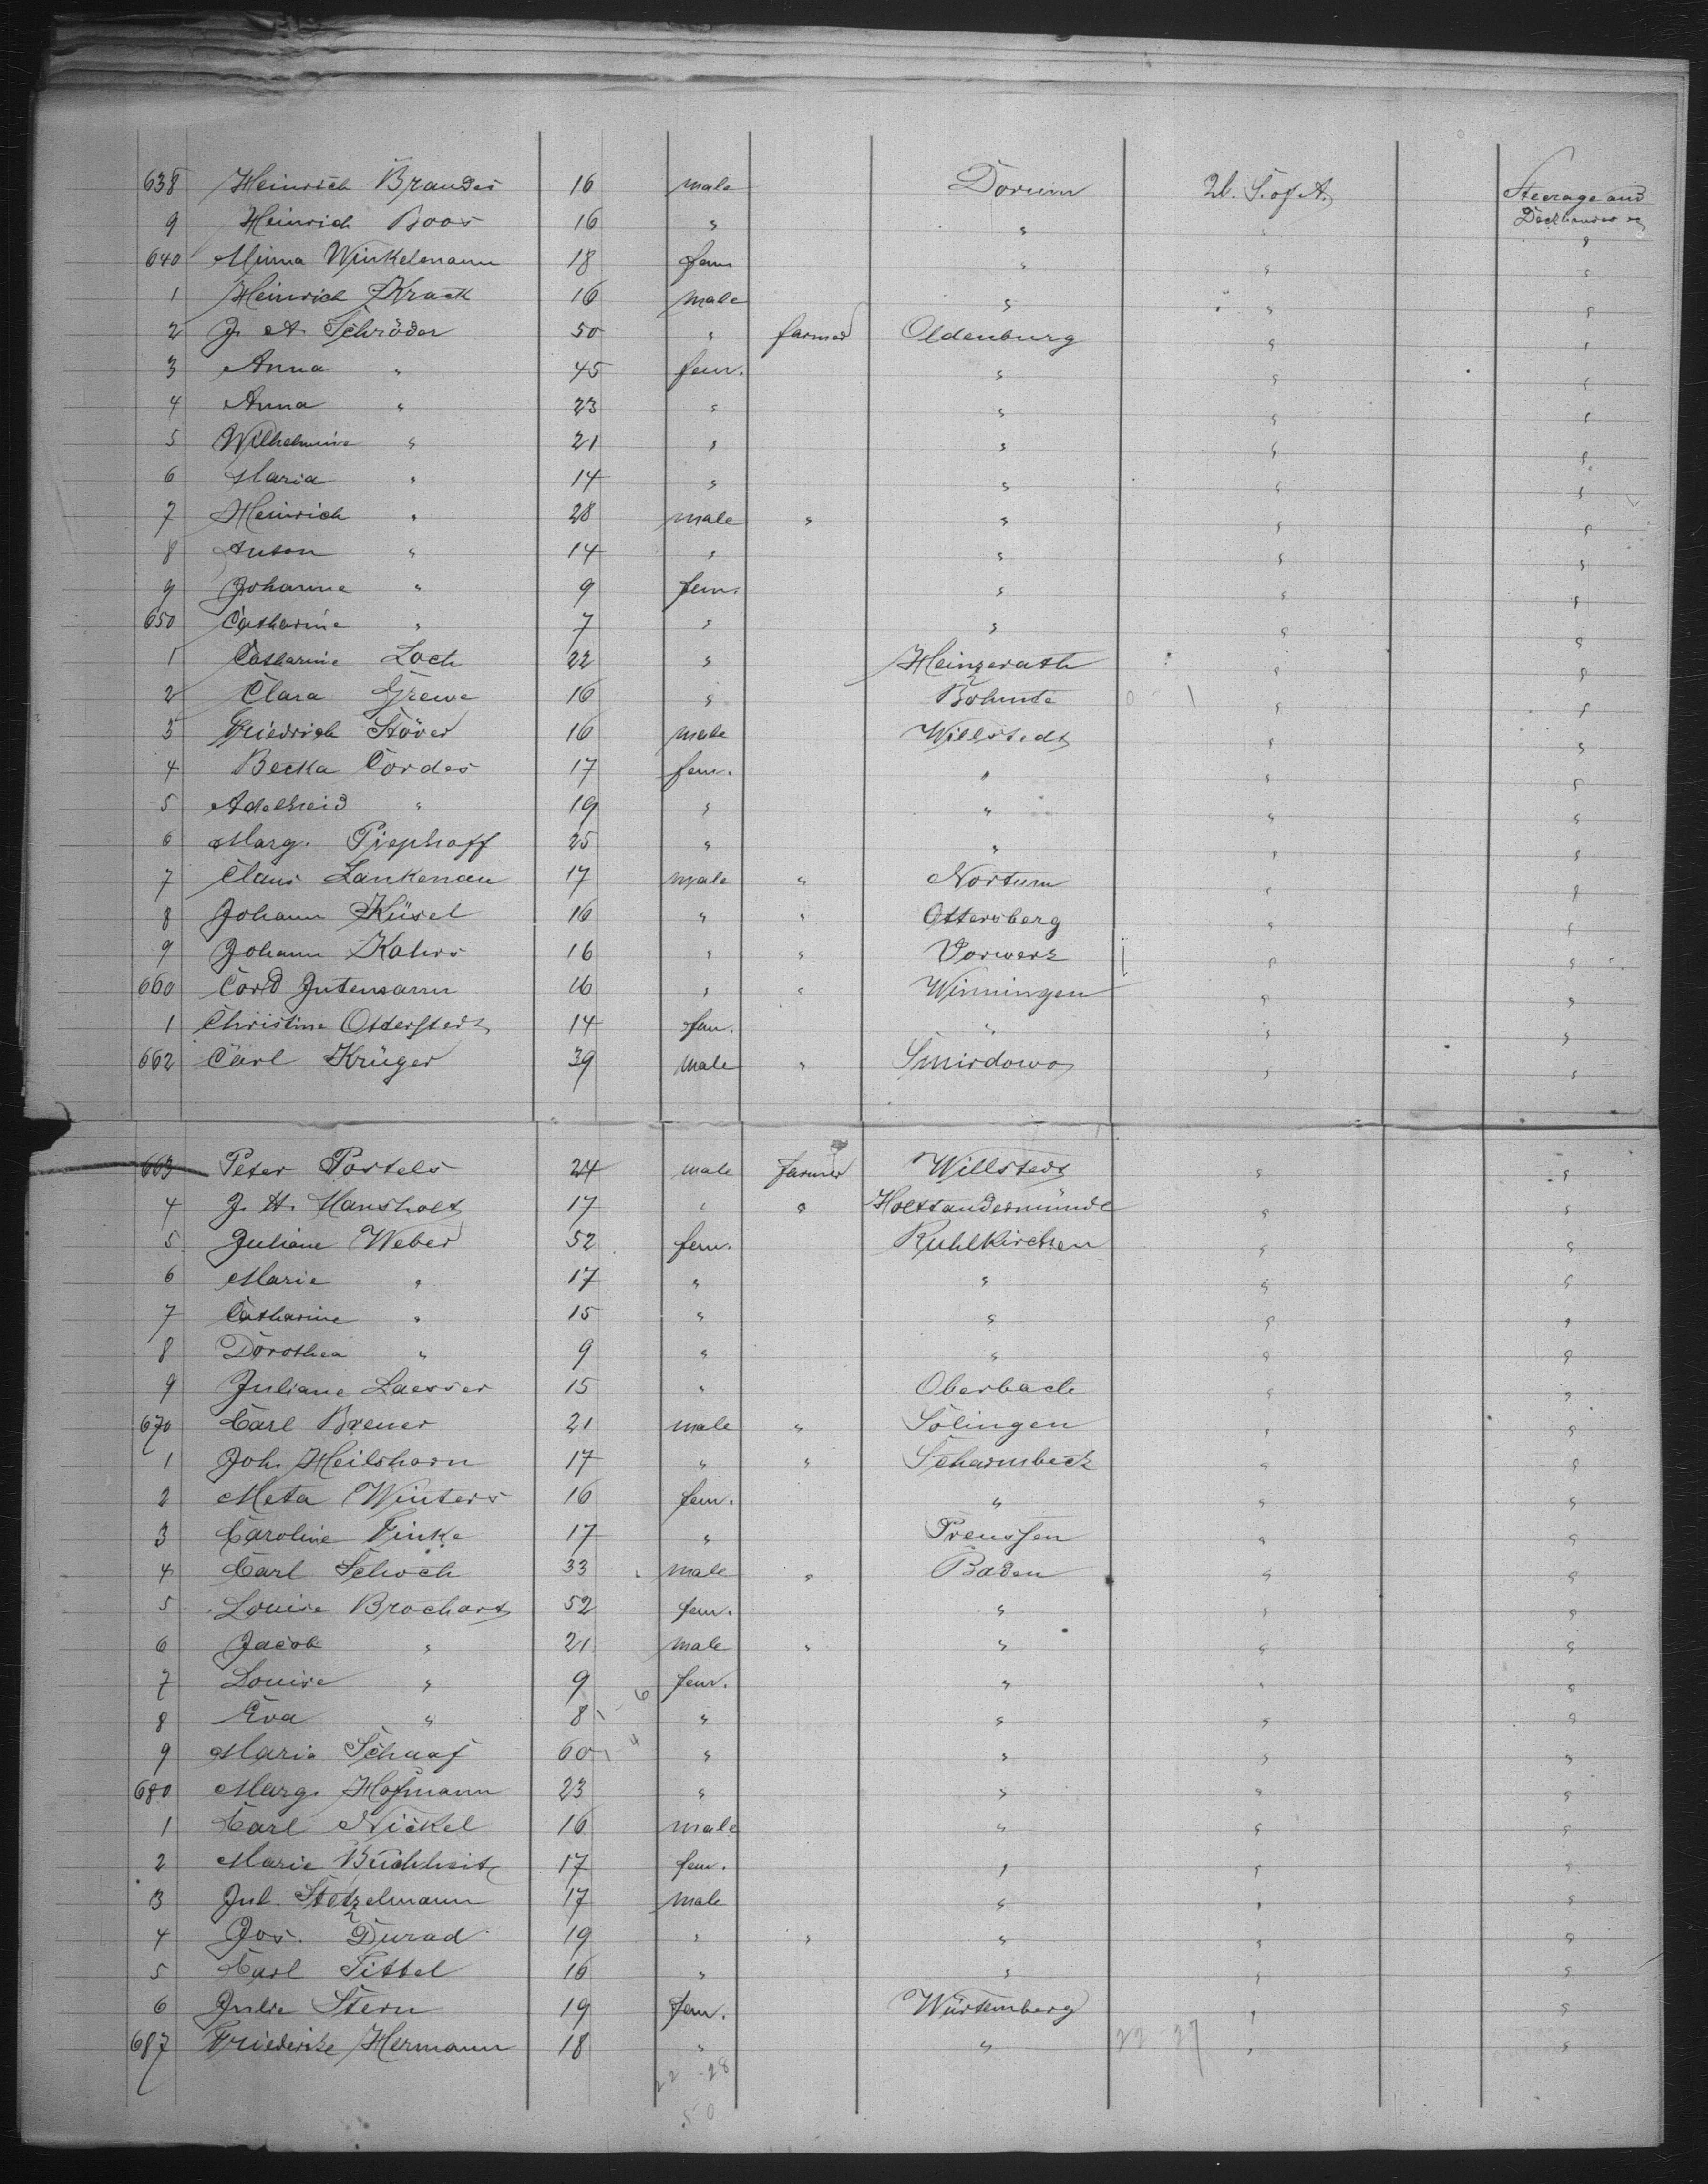 638 Heinrich Brandes 16 male Dorum U. S. of A. Steerage and
9 Heinrich Boos 16 " " " "
640 Minna Winkelmann 18 fem " " "
1 Heinrich Krack 16 male " " "
2 J. A. Schröder 50 " farmer Oldenburg " "
3 Anna " 45 fem. " " "
4 Anna " 23 " " " "
5 Wilhelmine " 21 " " " "
6 Maria " 14 " " " "
7 Heinrich " 28 male " " " "
8 Anton " 14 " " " "
9 Johanne " 9 fem. " " "
650 Catharine " 7 " " " "
1 Catharine Loch 22 " Heinzerath " "
2 Clara Grewe 16 " Bohmte " "
3 Friedrich Stöver 16 male Willstedt " "
4 Becka Cordes 17 fem. " " "
5 Adelheid " 19 " " " "
6 Marg. Piephoff 25 " " " "
7 Claus Lankenau 17 male " Nortum " "
8 Johann Küsel 16 " " Ottersberg " "
9 Johann Kahrs 16 " " Vorwerk " "
660 Cord Jutemann 16 " " Winningen " "
1 Christine Otterstedt 14 fem. " " "
662 Carl Krüger 39 male " Smirdowo " "
663 Peter Postels 24 male farmer Willstedt " "
4 J. H. Hansholt 17 " " Holtlandermünde " "
5 Juliane Weber 52 fem. Ruhlkirchen " "
6 Marie " 17 " " " "
7 Catharine " 15 " " " "
8 Dorothea " 9 " " " "
9 Juliane Laesser 15 " Oberbach " "
670 Carl Breuer 21 male " Solingen " "
1 Joh. Heilshorn 17 " " Scharmbeck " "
2 Meta Winters 16 fem. " " "
3 Caroline Finke 17 " Preussen " "
4 Carl Schoch 33 male " Baden " "
5 Louise Brochart 52 fem. " " "
6 Jacob " 21 male " " " "
7 Louise " 9 fem. " " "
8 Eva " 8 " " " "
9 Maria Schaaf 60 " " " "
680 Marg. Hofmann 23 " " " "
1 Carl Nickel 16 male " " "
2 Marie Buchheit 17 fem. " " "
3 Jul. Stetzelmann 17 male " " "
4 Jos. Durad 19 " " " " "
5 Carl Tittel 16 " " " "
6 Julie Stern 19 fem. Würtemberg " "
687 Friederike Hermann 18 " " 22-27 " "
22 28
50